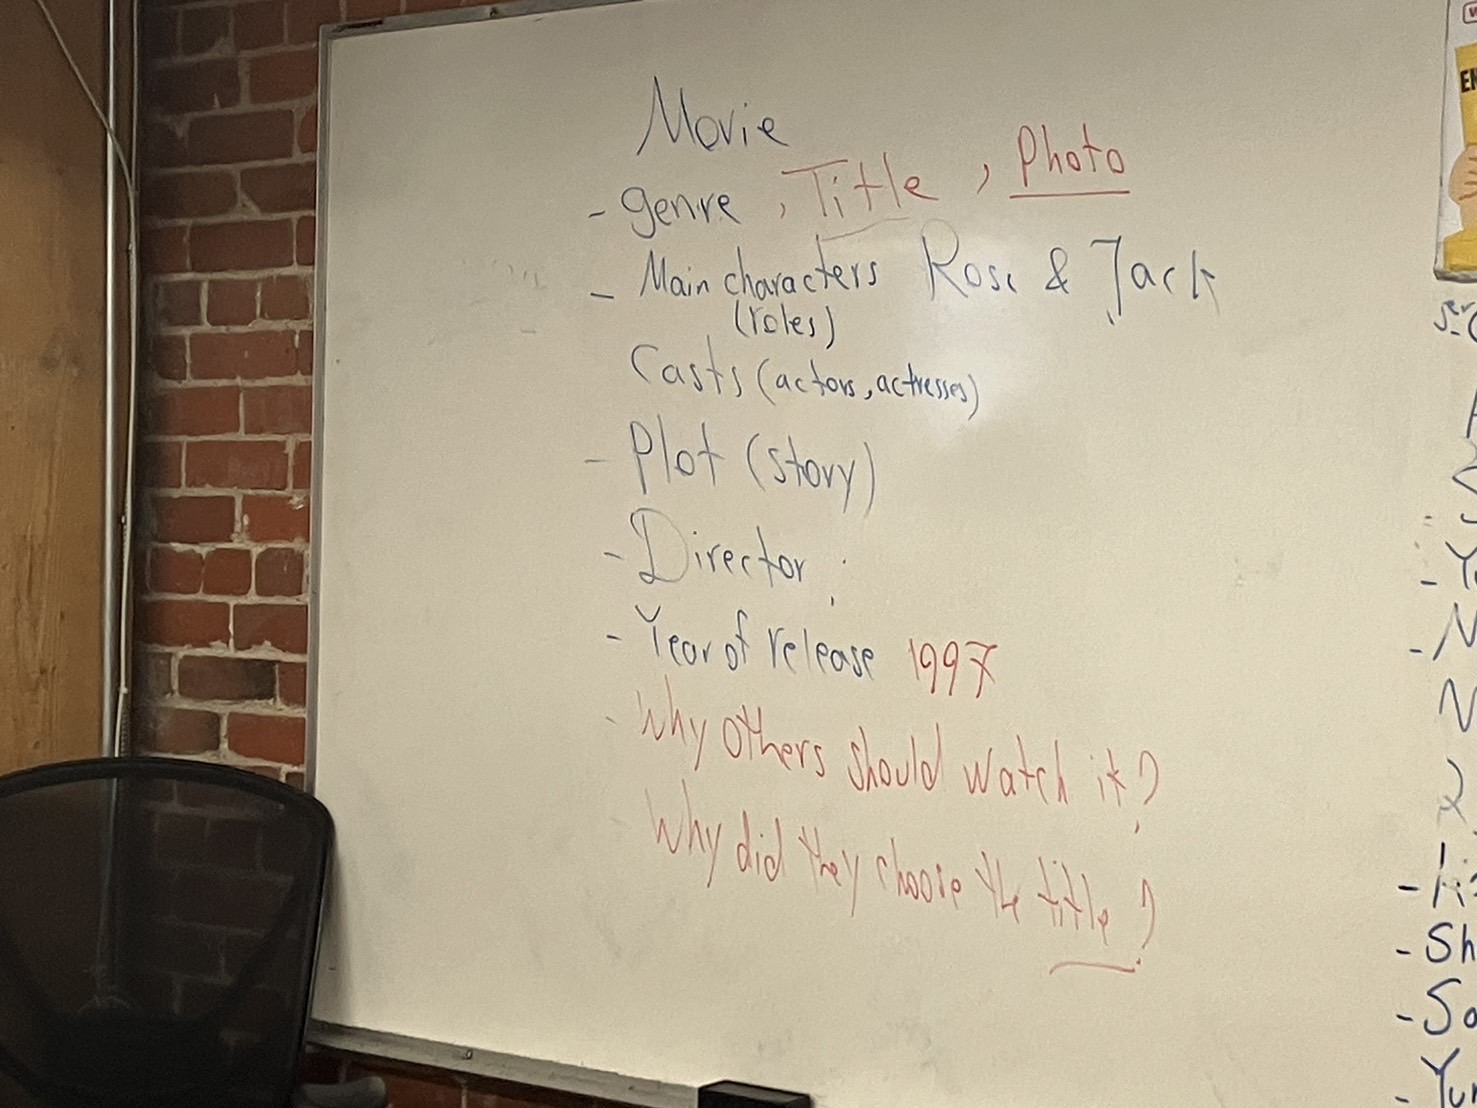 Movie
- genre , Title , Photo
- Main characters Rose & Jack
(roles)
Casts (actors, actresses)
- Plot (story)
- Director :
- Year of release 1997
- Why others should watch it?
Why did they choose the title?